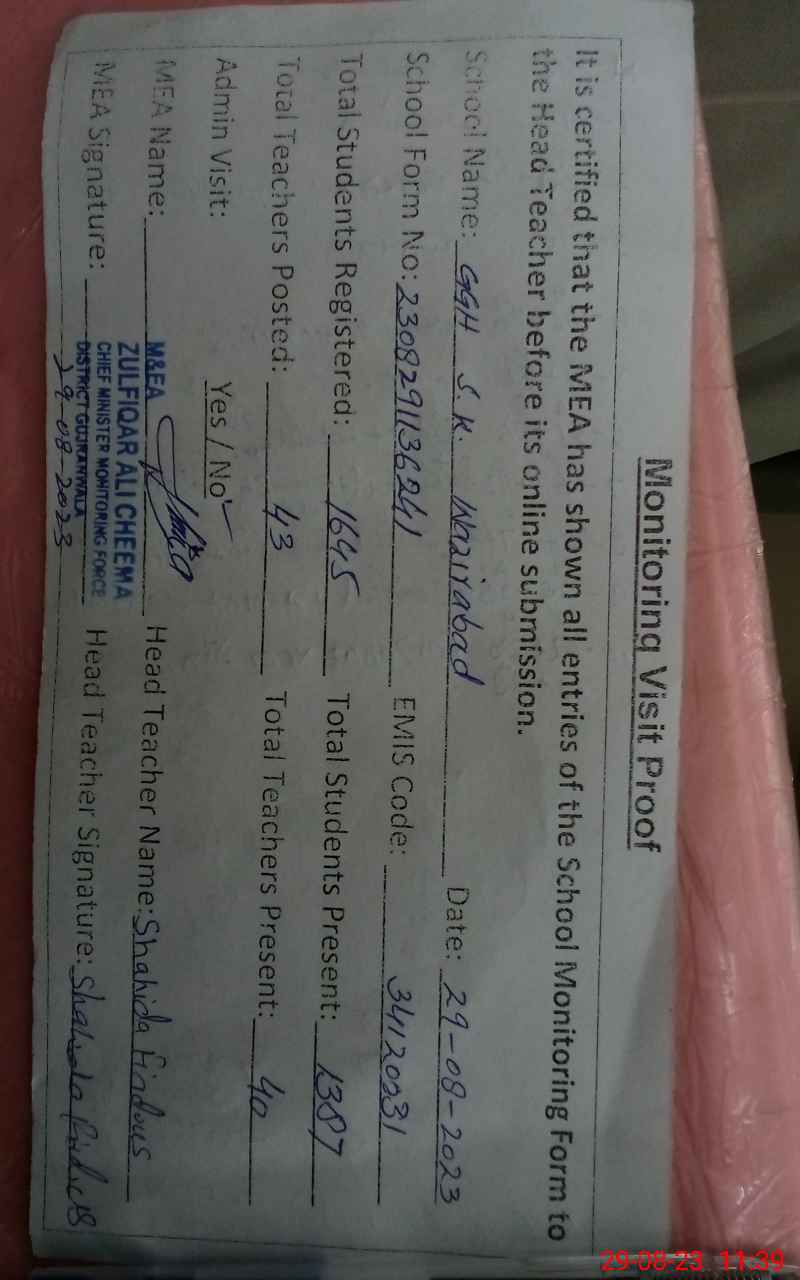 Monitoring Visit Proof
It is certified that the MEA has shown all entries of the School Monitoring Form to
the Head Teacher before its online submission.
School Name: GGH S.K. Wazirabad Date: 29-08-2023
School Form No: 2308291136241 EMIS Code: 34120231
Total Students Registered: 1645 Total Students Present: 1387
Total Teachers Posted: 43 Total Teachers Present: 40
Admin Visit: Yes / No
MEA Name: Head Teacher Name: Shahida Firdous
M&EA
ZULFIQAR ALI CHEEMA
CHIEF MINISTER MONITORING FORCE
DISTRICT GUJRANWALA
MEA Signature: 29-08-2023 Head Teacher Signature: Shahida Firdous
29-08-23 11:39